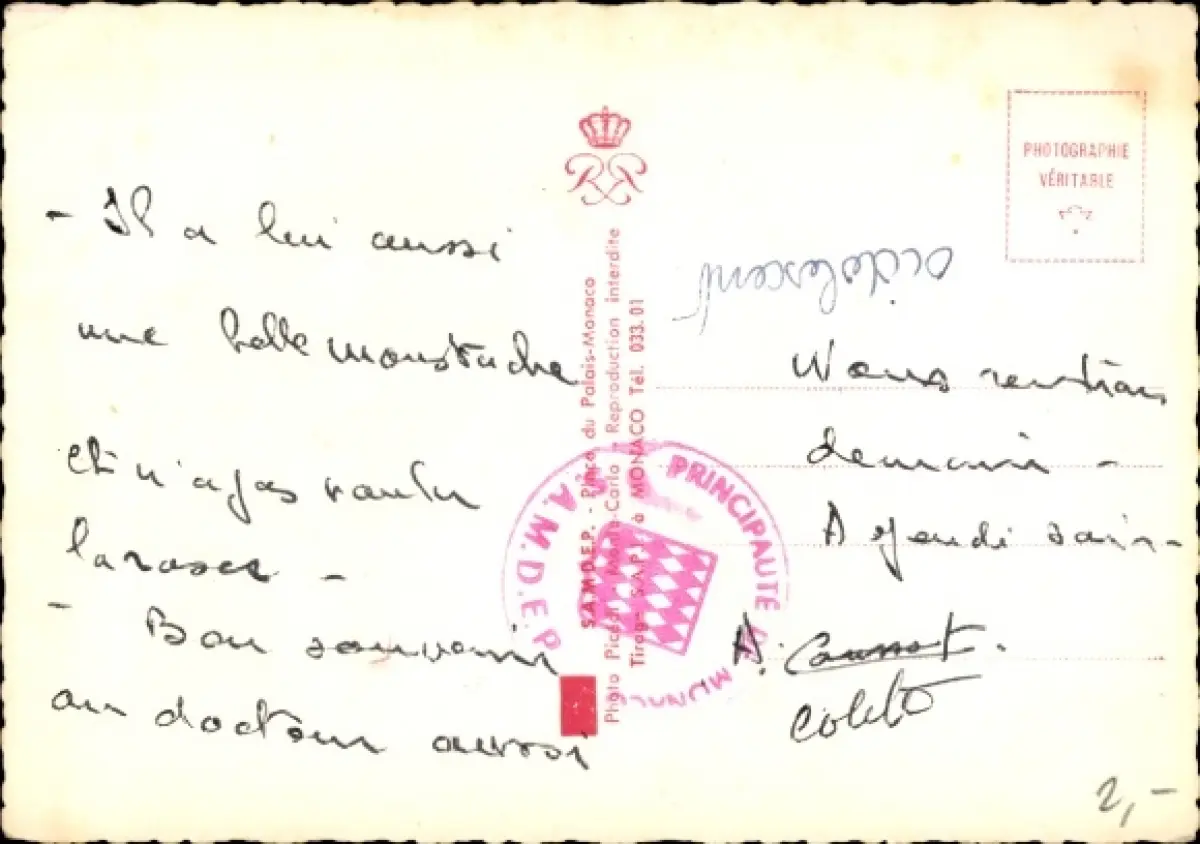 - Il a lui aussi
une belle moustache
et n'a pas voulu
la raser -
- Bon souvenir
au docteur aussi
SAMDEP. - Place du Palais-Monaco
Photo Picedi Monte-Carlo - Reproduction interdite
Tirage S.A.P.I à MONACO Tél. 033.01
PRINCIPAUTÉ DE MONACO
A.M.D.E.P.
PHOTOGRAPHIE
VÉRITABLE
Nous rentrons
demain -
A jeudi soir -
A.
2,-